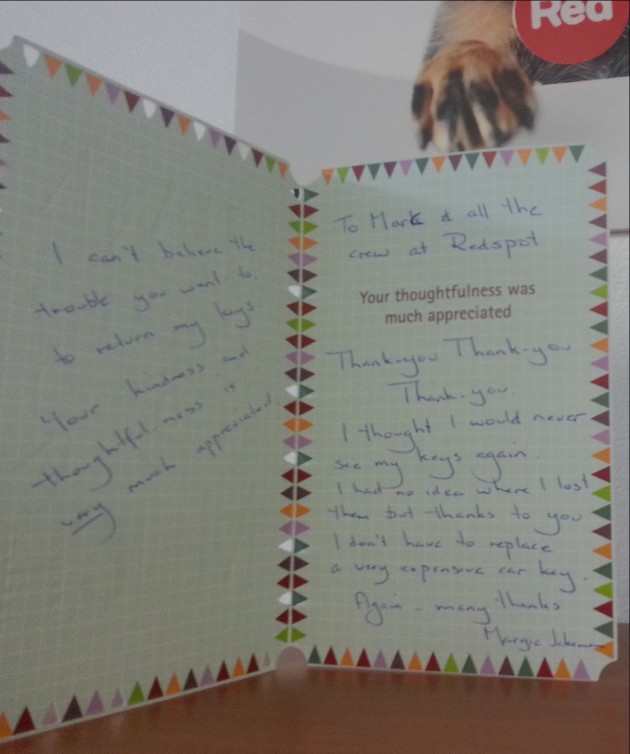 Red
I can't believe the
trouble you went to
to return my keys
Your kindness and
thoughtfulness is
very much appreciated
To Mark & all the
crew at Redspot
Your thoughtfulness was
much appreciated
Thank-you Thank-you
Thank-you.
I thought I would never
see my keys again.
I had no idea where I lost
them but thanks to you
I don't have to replace
a very expensive car key.
Again - many thanks
Margie